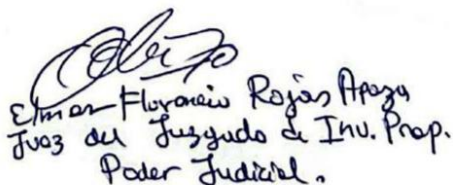 Elmer Florencio Rojas Apaza
Juez del Juzgado de Inv. Prep.
Poder Judicial.